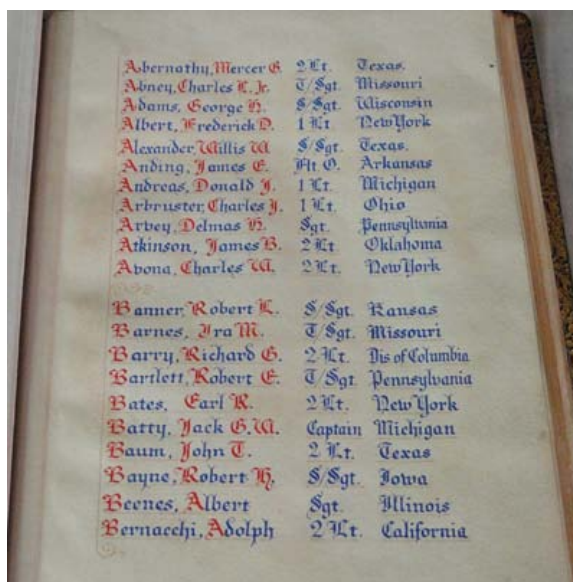 Abernathy, Mercer G. 2 Lt. Texas.
Abney, Charles L. Jr. T/Sgt. Missouri
Adams, George H. S/Sgt. Wisconsin
Albert, Frederick D. 1 Lt. New York
Alexander, Willis W S/Sgt. Texas.
Anding, James E. Flt O. Arkansas
Andreas, Donald J. 1 Lt. Michigan
Arbruster, Charles J. 1 Lt. Ohio
Arvey, Delmas H. Sgt. Pennsylvania
Atkinson, James B. 2 Lt. Oklahoma
Avona, Charles W. 2 Lt. New York
Banner, Robert L. S/Sgt. Kansas
Barnes, Ira M. T/Sgt. Missouri
Barry, Richard G. 2 Lt. Dis of Columbia
Bartlett, Robert E. T/Sgt. Pennsylvania
Bates, Earl R. 2 Lt. New York
Batty, Jack G.W. Captain Michigan
Baum, John T. 2 Lt. Texas
Bayne, Robert H. S/Sgt. Iowa
Beenes, Albert Sgt. Illinois
Bernacchi, Adolph 2 Lt. California